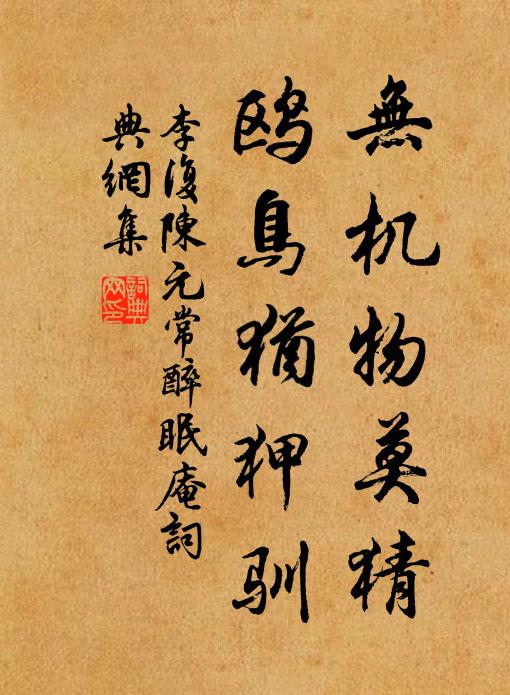 無机物莫猜
鸥鳥猶狎馴
李復陳元常醉眠庵詞
典網集
詞典網印